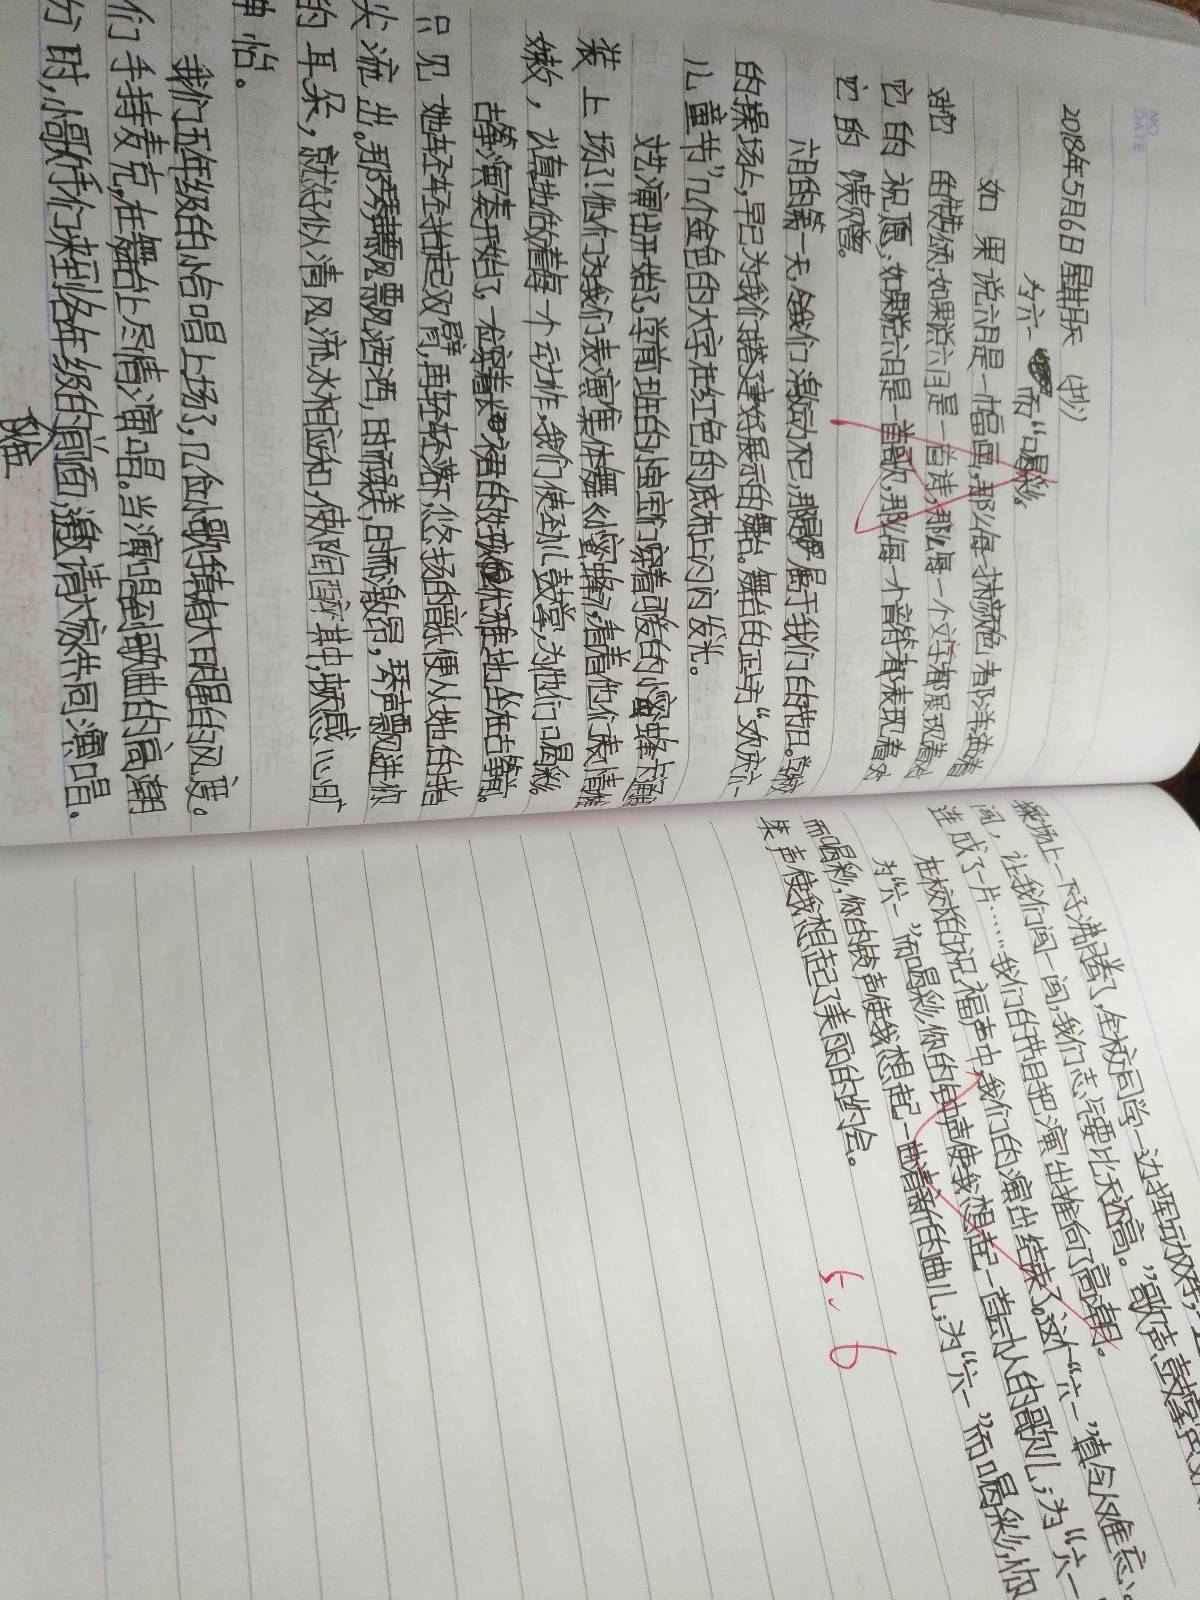 NO.
DATE
2018年5月6日 星期天 (抄)
为六一 而“喝彩”
如果说六月是一幅画,那么每一抹颜色都洋溢着
对它的赞颂;如果说六月是一首诗,那么每一个文字都展现着对
它的祝愿;如果说六月是一首歌,那么每一个音符都表现着对
它的馈赠。
六月的第一天,令我们激动不已,那是属于我们的节日。学校
的操场上,早已为我们搭建好展示的舞台。舞台的正方“欢庆六一
儿童节”几个金色的大字在红色的底布上闪闪发光。
文艺演出开始了,学前班的小宝宝们穿着可爱的小蜜蜂卡通服
装上场了!他们为我们表演集体舞《小蜜蜂》。看着他们表情稚
嫩,认真地做着每一个动作。我们使劲儿鼓掌,为他们喝彩。
古筝演奏开始了,一位穿着长裙的女孩优雅地坐在古筝前。
只见她轻轻抬起双臂,再轻轻落下,悠扬的音乐便从她的指
尖流出。那琴声飘飘洒洒,时而柔美,时而激昂,琴声飘进你
的耳朵,就好似清风流水相应和,使人陶醉其中,顿感心旷
神怡。
我们五年级的小合唱上场了,几位小歌手颇有大明星的风度。
们手持麦克,在舞台上尽情演唱。当演唱到歌曲的高潮
分时,小歌手们来到各年级的前面,邀请大家共同演唱。
队伍
操场上一下子沸腾了,全校同学一边挥动双手,
闯,让我们闯一闯,我们志气要比天还高。”歌声、鼓掌声
连成了一片……我们的节目把演出推向了高潮。
在校长的祝福声中,我们的演出结束了。这个“六一”真令人难忘。
为“六一”而喝彩,你的钟声使我想起一首动人的歌儿;为“六一”
而喝彩,你的铃声使我想起一曲清新的曲儿;为“六一”而喝彩,你
集声使我想起了美丽的约会。
5.6